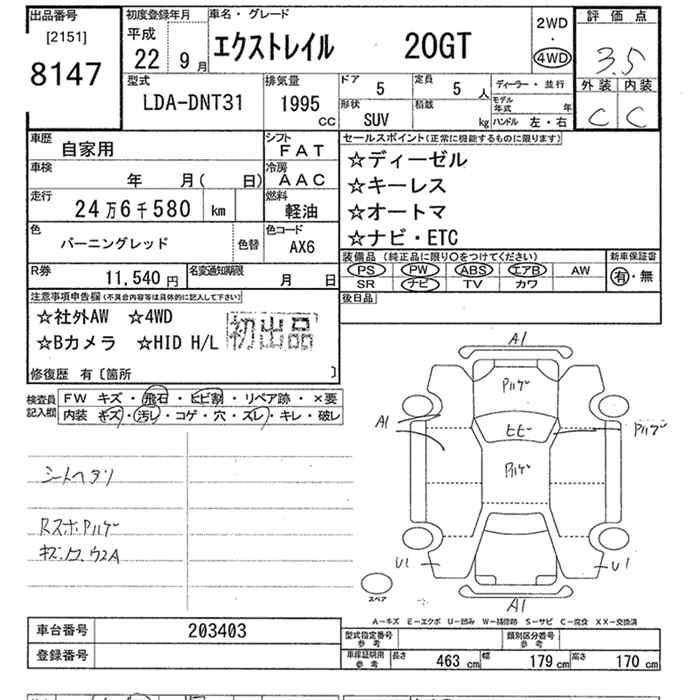 出品番号
[2151]
8147
初度登録年月
平成
22 9月
車名・グレード
エクストレイル 20GT
2WD
・
4WD
評価点
3.5
外装 内装
C C
型式
LDA-DNT31
排気量
1995
CC
ドア
5
定員
5 人
形状
SUV
積載
kg
ディーラー・並行
モデル年式 年
ハンドル 左・右
車歴
自家用
シフト
FAT
車検
年 月( 日)
冷房
AAC
走行
24万6千580 km
燃料
軽油
色
バーニングレッド
色替
色コード
AX6
R券
11,540 円
名変通知期限
月 日
セールスポイント(正常に機能するものに限ります)
☆ディーゼル
☆キーレス
☆オートマ
☆ナビ・ETC
装備品(純正品に限り○をつけてください)
PS PW ABS エアB AW
SR ナビ TV カワ
新車保証書
有・無
後日品
注意事項申告欄(不具合内容等は具体的に記入して下さい)
☆社外AW ☆4WD
☆Bカメラ ☆HID H/L
初出品
修復歴 有〔箇所 〕
検査員記入欄
FW キズ・飛石・ヒビ割・リペア跡・×要
内装 キズ・汚し・コゲ・穴・スレ・キレ・破レ
シートヘタリ
RスポPハゲ
A1
Pハゲ
A1
ヒビ
Pハゲ
Pハゲ
U1
U1
A1
スペア
A−キズ E−エクボ U−凹み W−補修跡 S−サビ C−腐食 XX−交換済
車台番号
203403
登録番号
型式指定番号
参考
類別区分番号
参考
車庫証明用
参考
長さ 463 cm
幅 179 cm
高さ 170 cm